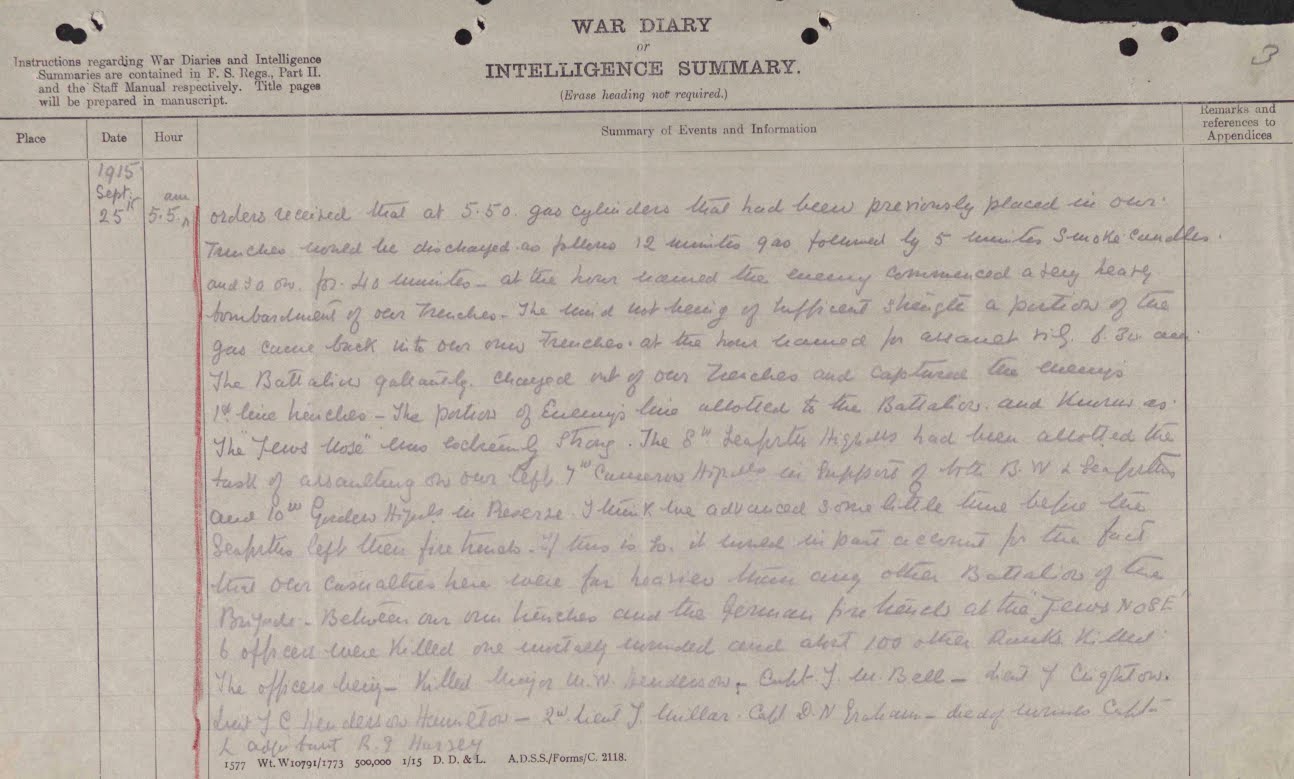 3
WAR DIARY
or
INTELLIGENCE SUMMARY.
(Erase heading not required.)
Instructions regarding War Diaries and Intelligence
Summaries are contained in F. S. Regs., Part II.
and the Staff Manual respectively. Title pages
will be prepared in manuscript.
Place Date Hour Summary of Events and Information Remarks and references to Appendices
1915
Sept.
25th
am
5.5.
orders received that at 5.50. gas cylinders that had been previously placed in our
Trenches would be discharged as follows 12 minutes gas followed by 5 minutes Smoke Candles.
and so on. for. 40 minutes – at the hour named the enemy commenced a very heavy
bombardment of our Trenches – The wind not being of sufficient strength a portion of the
gas came back into our own Trenches. at the hour named for assault viz. 6.30 am
The Battalion gallantly. charged out of our Trenches and captured the enemy's
1st line trenches – The portion of Enemy's line allotted to the Battalion. and known as
The "Jews Nose" was extremely strong. The 8th Seaforth Highdrs had been allotted the
task of assaulting on our left 7th Cameron in support of both B.W & Seaforths
and 10th Gordon in Reserve. I think we advanced some little time before the
Seaforths left their fire trench. If this is so. it would in part account for the fact
that our casualties here were far heavier than any other Battalion of the
Brigade – Between our own trenches and the German fire trench at the "Jews NOSE"
6 officers were killed one mortally wounded and about 100 other Ranks killed
The officers being – Killed Major M.W. Henderson – Capt. J. M. Bell – Lieut J Crighton.
Lieut J C Henderson Hamilton – 2nd Lieut J. Millar. Capt D. N Graham – died of wounds Capt
& adjutant R. E Harvey
1577 Wt. W10791/1773 500,000 1/15 D. D. & L. A.D.S.S./Forms/C. 2118.